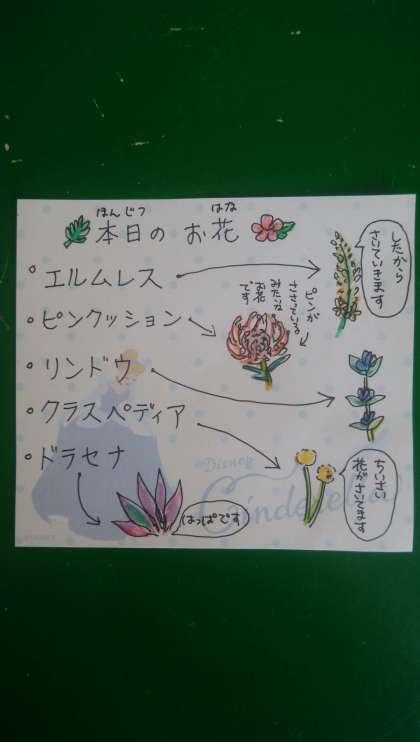 ほんじつ はな
本日の お花
・エルムレス
したから
さいていきます
・ピンクッション
ピンが
ささっている
みたいな
お花
です
・リンドウ
・クラスペディア
ちいさい
花がさいてます
・ドラセナ
はっぱです
©Disney
Cinderella